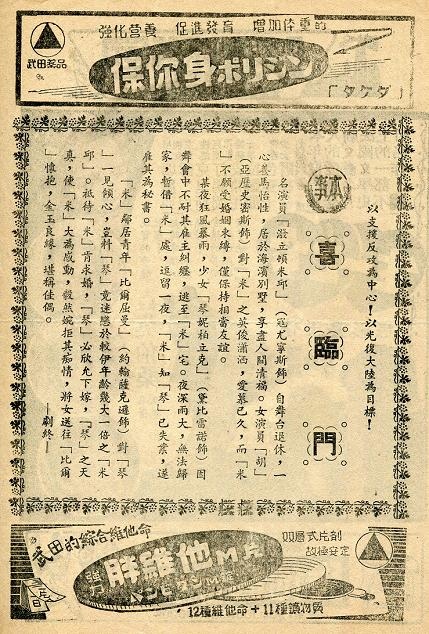 強化営養 促進發育 增加体重的
武田薬品
保你身ポリシン
「タケダ」
以支援反攻為中心！以光復大陸為目標！
喜臨門
本事
名演員「潑立頓米邱」（寇尤寧斯飾）自舞台退休，一
心養馬怡性，居於海濱別墅，享盡人間清福。女演員「胡」
（亞歷史密斯飾）對「米」之英俊瀟洒，愛慕已久，而「米
」不願受婚姻束縛，僅保持相當友誼。
某夜狂風暴雨，少女「琴妮柏立克」（黛比雷諾飾）因
舞會中不耐其雇主糾纏，逃至「米」宅。夜深雨大，無法歸
家，暫借「米」處，逗留一夜，「米」知「琴」已失業，遂
雇其為秘書。
「米」鄰居青年「比爾屈曼」（約翰薩克遜飾）對「琴
」一見傾心，豈料「琴」竟迷戀於較伊年齡幾大一倍之「米
邱」。祇待「米」肯求婚，「琴」必欣允下嫁，「琴」之天
真，使「米」大為感動，毅然婉拒其痴情，將女送往「比爾
」懷抱，金玉良緣，堪稱佳偶。
——劇終——
武田的綜合維他命
双層式片剤
故極安定
強力 胖維他M錠
パンビタンM錠
12種維他命＋11種鑛物質